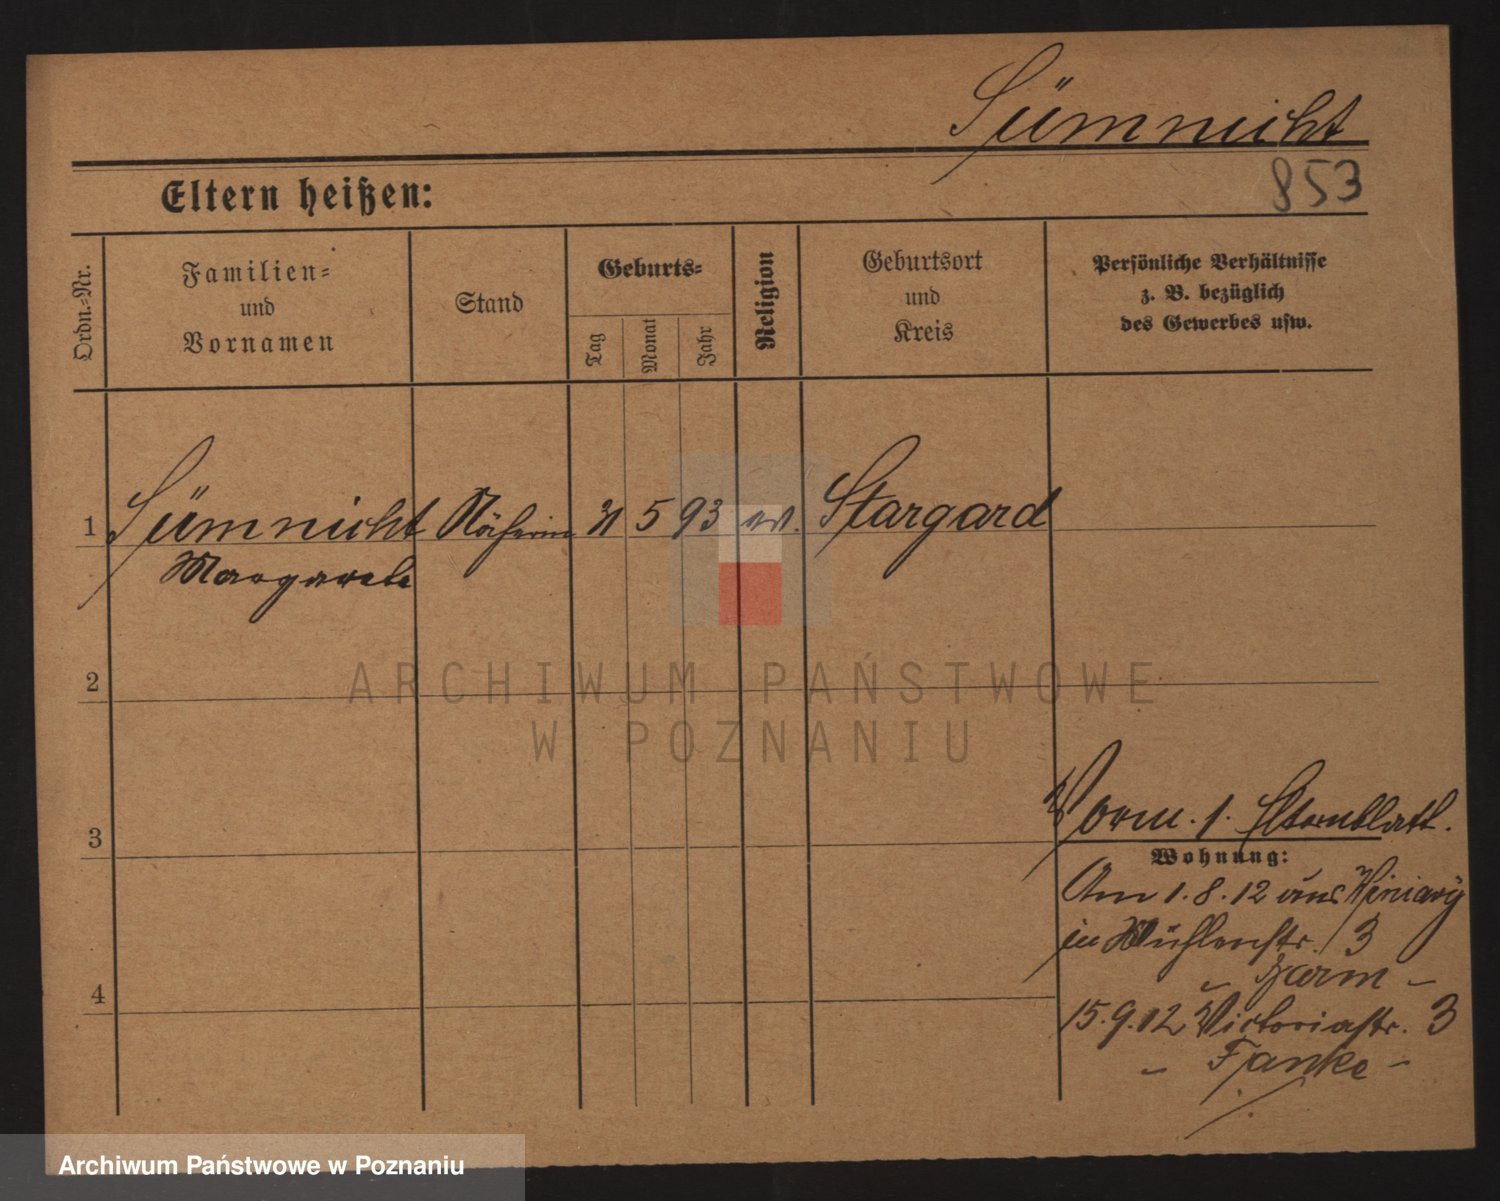 Sümnicht
853
Eltern heißen:
Ordn.-Nr.
Familien-
und
Vornamen
Stand
Geburts-
Tag
Monat
Jahr
Religion
Geburtsort
und
Kreis
Persönliche Verhältnisse
z. B. bezüglich
des Gewerbes usw.
1 Sümnicht Näherin 31 5 93 ev. Stargard
Margarete
2
ARCHIWUM PAŃSTWOWE
W POZNANIU
Vorm. 1. Elternblatt.
3
Wohnung:
Am 1.8.12 aus Winiary
in Mühlenstr. 3
4
15.9.12 Victoriastr. 3
- Franke -
Archiwum Państwowe w Poznaniu